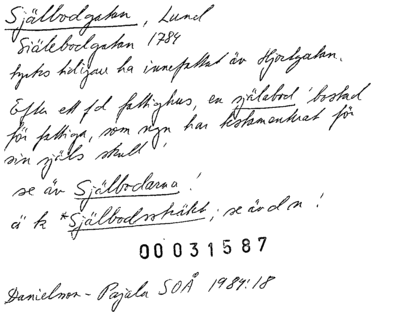 Själbodgatan, Lund
Siälebodgatan 1784
tycks tidigare ha innefattat äv Hjortgatan.
Efter ett fd fattighus, en själabod 'bostad
för fattiga, som ngn har testamenterat för
sin själs skull'
se äv Själbodarna!
ä k *Själbodssträtet; se äv d n!
00031587
Danielson-Pajala SOÅ 1984:18